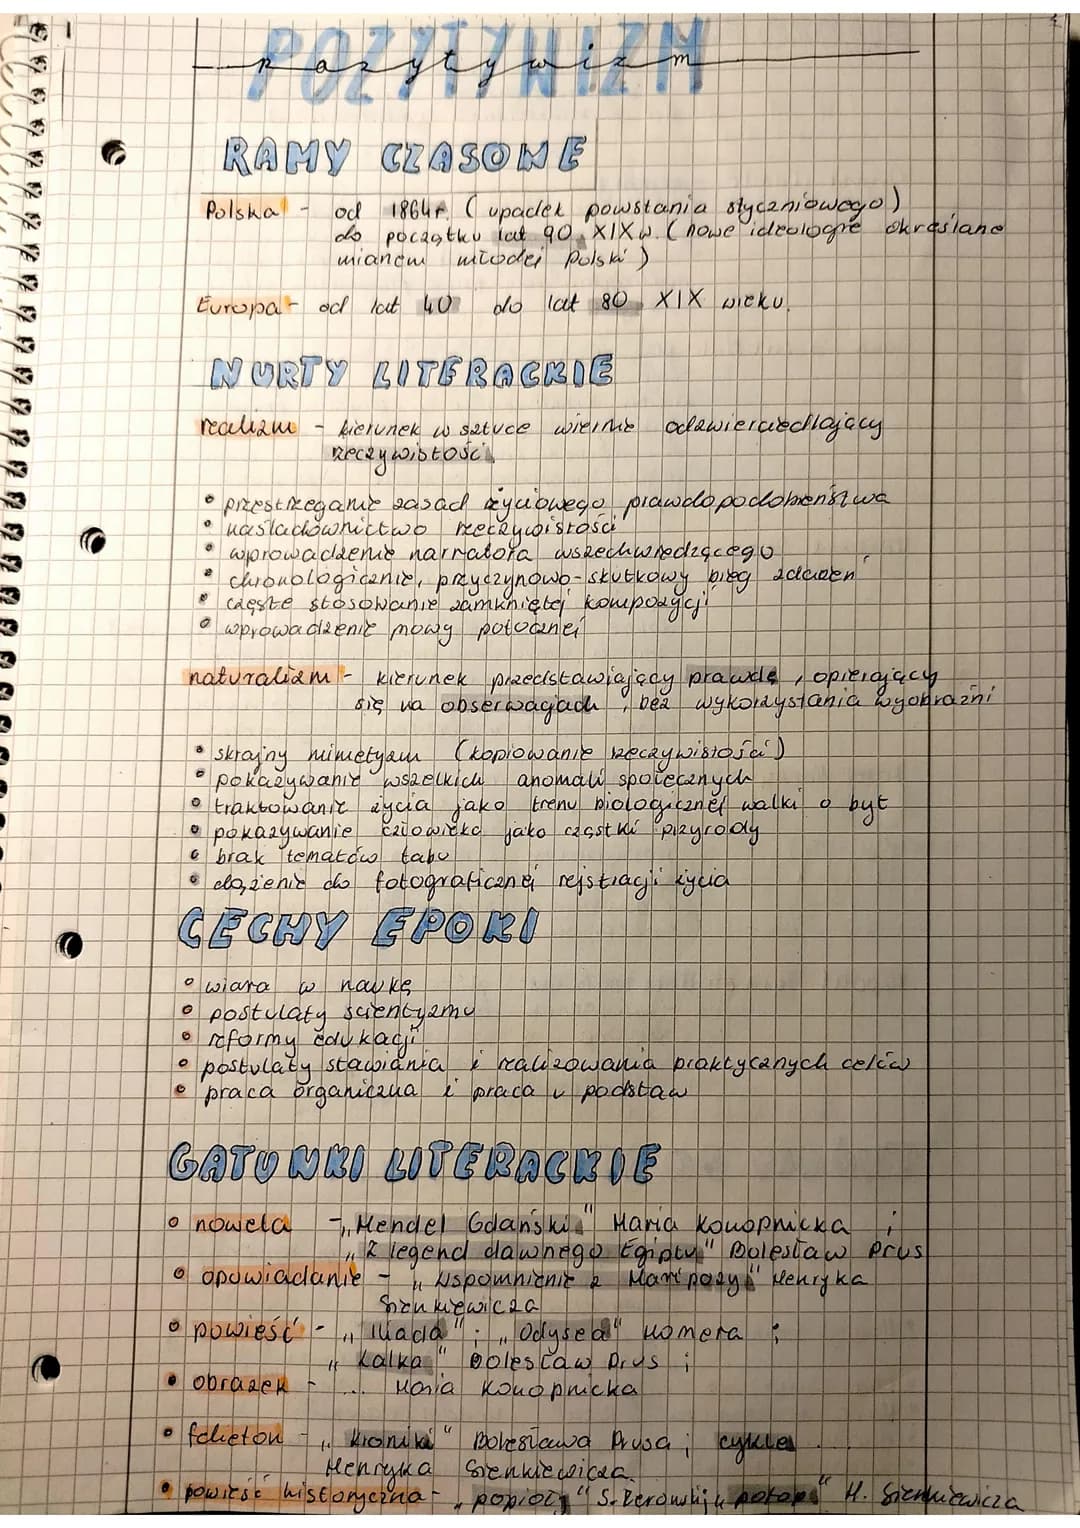 POZYTYWIZM
pozytywizm
RAMY CZASOWE
Polska - od 1864r. (upadek powstania styczniowego)
do początku lat 90 XIX w. (nowe ideologie określane
mianem młodej Polski)
Europa - od lat 40 do lat 80 XIX wieku.
NURTY LITERACKIE
realizm - kierunek w sztuce wiernie odzwierciedlający
rzeczywistość
• przestrzeganie zasad życiowego prawdopodobieństwa
• naśladownictwo rzeczywistości
• wprowadzenie narratora wszechwiedzącego
• chronologicznie, przyczynowo-skutkowy bieg zdarzeń
• częste stosowanie zamkniętej kompozycji
• wprowadzenie mowy potocznej
naturalizm - kierunek przedstawiający prawdę, opierający
się na obserwacjach, bez wykorzystania wyobraźni
• skrajny mimetyzm (kopiowanie rzeczywistości)
• pokazywanie wszelkich anomali społecznych
• traktowanie życia jako trenu biologicznej walki o byt
• pokazywanie człowieka jako cząstki przyrody
• brak tematów tabu
• dążenie do fotograficznej rejstracji życia
CECHY EPOKI
• wiara w naukę
• postulaty scientyzmu
• reformy edukacji
• postulaty stawiania i realizowania praktycznych celów
• praca organiczna i praca u podstaw
GATUNKI LITERACKIE
• nowela - „Mendel Gdański" Maria Konopnicka ;
„Z legend dawnego Egiptu" Bolesław Prus
• opowiadanie - „Wspomnienie z Maripozy" Henryka
Sienkiewicza
• powieść - „Iliada" ; „Odysea" Homera ;
„Lalka" Bolesław Prus ;
• obrazek - ... Maria Konopnicka
• felieton - „Kroniki" Bolesława Prusa ; cykle
Henryka Sienkiewicza.
• powieść historyczna - „popioły" S. Żeromskij „potop" H. Sienkiewicza